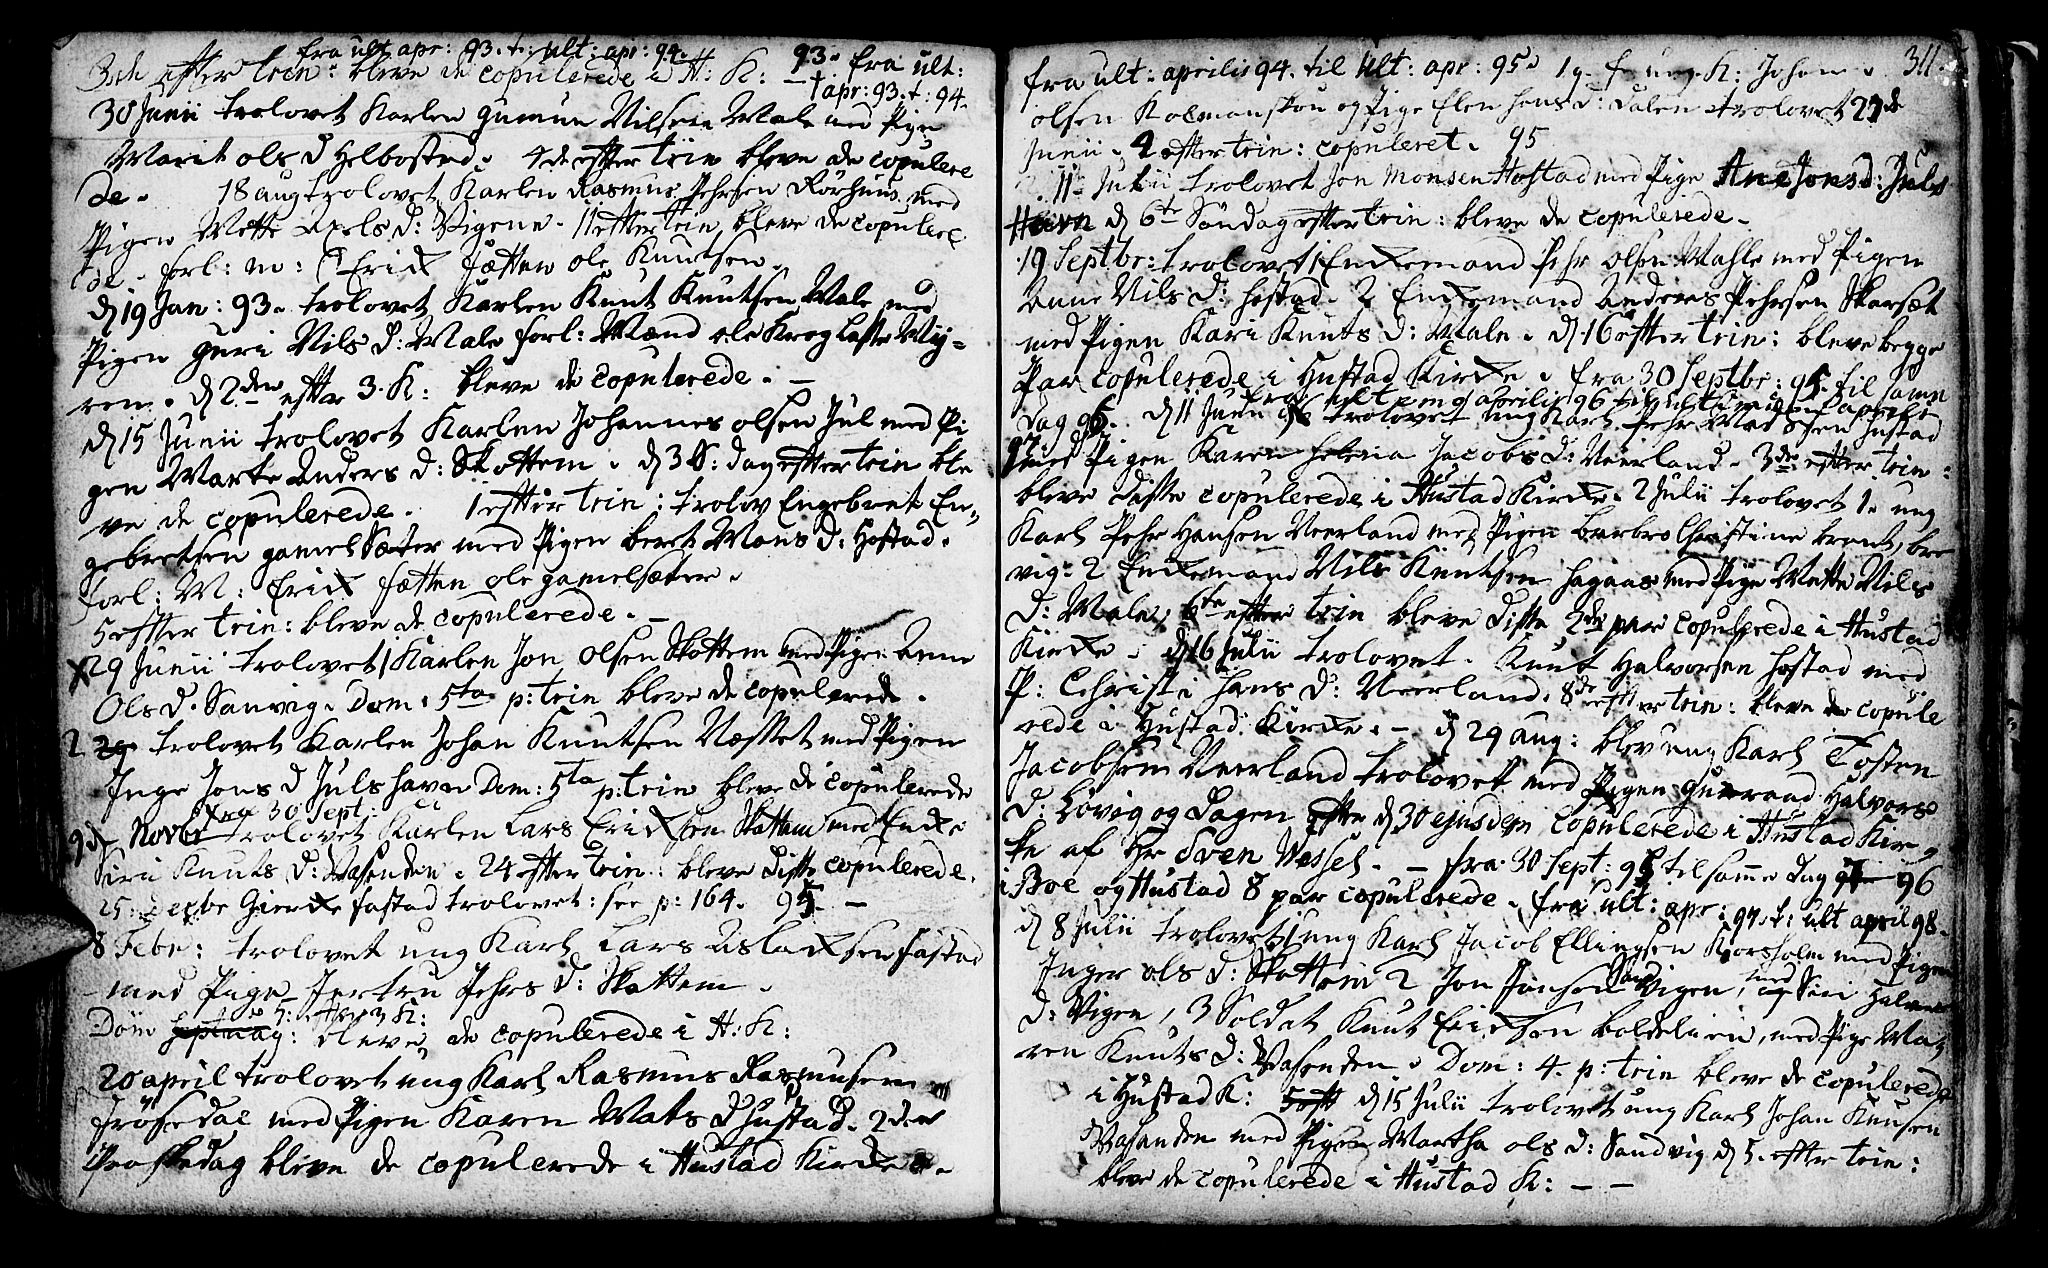 fra ult apr: 93. t: ult: apr: 94.
3die efter trin: bleve de copulerede i H: K: — 93. fra ult:
apr: 93. t: 94.
30 Junii trolovet Karlen Gunnu Nilsen Male med Pigen
Marit Ols D Helbostad. 4de efter trin bleve de copulere
de. 18 aug trolovet Karlen Rasmus Pehrsen Rørhuus med
Pigen Mette Axels D: Vigene. 11 efter trin bleve de copulere
de. forl: m: Erick Fætten Ole Knutsen.
d 19 Jan: 93. trolovet Karlen Knut Knutsen Male med
Pigen Guri Nils D: Male forl: Mænd Ole Krog Lasse Myr=
ren. d 2den efter 3. K: bleve de copulerede. —
d 15 Junii trolovet Karlen Johannes Olsen Jul med Pi
gen Marte Anders D: Skottem. d 3 S: dag efter trin ble
ve de copulerede. 1 efter trin: trolov Engebret En=
gebretsen Gamelsæter med Pigen Beret Mons D: Hostad.
forl: M: Erick Fætten Ole Gamelsæter.
5 efter trin: bleve de copulerede. —
29 Junii trolovet 1 Karlen Jon Olsen Skottem med Pigen Anne
Ols D. Sanvig. Dom. 5ta p: trin bleve de copulerede.
2 trolovet Karlen Johan Knutsen Næsset med Pigen
Inge Jons D Julshavn Dom: 5ta p: trin bleve de copulerede
fra 30 Sept:
9de Novbr trolovet Karlen Lars Ericksen Skottem med Encke
Siri Knuts D: Vasenden. 24 efter trin: bleve disse copulerede.
25 decbr Giercke Fastad trolovet: see p: 164. 95. —
8 Febr: trolovet ung Karl Lars Aslacksen Fastad
med Pige Jertru Pehrs D: Skottem.
Dom 5: efter 3 K: bleve de copulerede i H: K:
20 april trolovet ung Karl Rasmus Rasmusen
Frøsedal med Pigen Karen Mats D Hustad. 2den
Paaskedag bleve de copulerede i Hustad Kircke.
311.
fra ult: aprilis 94. til ult: apr: 95. ung. K: Johan
Olsen Kolmanskou og Pige Elen Hans D: Dalen trolovet 27de
Junii. 2 efter trin: copuleret. 95
11 Julii trolovet Jon Monsen Hostad med Pige Ane Jons D: Juls
Havn d 6te Søndag efter trin: bleve de copulerede.
19 Septbr: trolovet 1 Enckemand Pehr Olsen Mahle med Pigen
Anne Nils D: Hostad. 2 Enckemand Anders Pehrsen Skarsæt
med Pigen Kari Knuts D: Male. d 16 efter trin: bleve begge
Par copulerede i Hustad Kircke. fra 30 Septbr: 95. til samme
fra ultimo aprilis 96 til ultimo aprilis
Dag 96. d 11 Junii trolovet ung Karl Pehr Madsen Hustad
97. med Pigen Karen Helena Jacobs D: Neerland. 3de efter trin:
bleve disse copulerede i Hustad Kircke. 2 Julii trolovet 1. ung
Karl Pehr Hansen Neerland med Pigen Barbro Christine Brant, bre
vig. 2 Enckemand Nils Knutsen Hagaas med Pige Mette Nils
D: Male. 6te efter trin bleve disse 2de par copulerede i Hustad
Kircke. d 16 Julii trolovet. Knut Halvorsen Hostad med
P: Christi Hans D: Neerland. 8de efter trin: bleve de copule
rede i Hustad Kircke. — d 29 aug: blev ung Karl Tosten
Jacobsen Neerland trolovet med Pigen Gunrand Halvors
D: Lovig og Dagen efter d 30 ejusdem copulerede i Hustad Kir=
ke af Hr Sven Wessel. — fra 30 Sept: 95 til samme dag 96
i Boe og Hustad 8 par copulerede. fra ult: apr: 97. t: ult april 98.
d 8 Julii trolovet 1 ung Karl Jacob Ellingsen Korsholm med Pigen
Inger Ols D: Skottem 2 Jon Jonsen Vigen, med Siri Halvors
D: Vigen, 3 Soldat Knut Ericksen Boldelien, med Pige Ma
ren Knuts D: Vasenden. Dom: 4. p: trin bleve de copulerede
i Hustad K: d 15 Julii trolovet ung Karl Johan Knusen
Vasenden med Pigen Martha Ols D: Sandvig. d 5. efter trin:
bleve de copulerede i Hustad K: — —